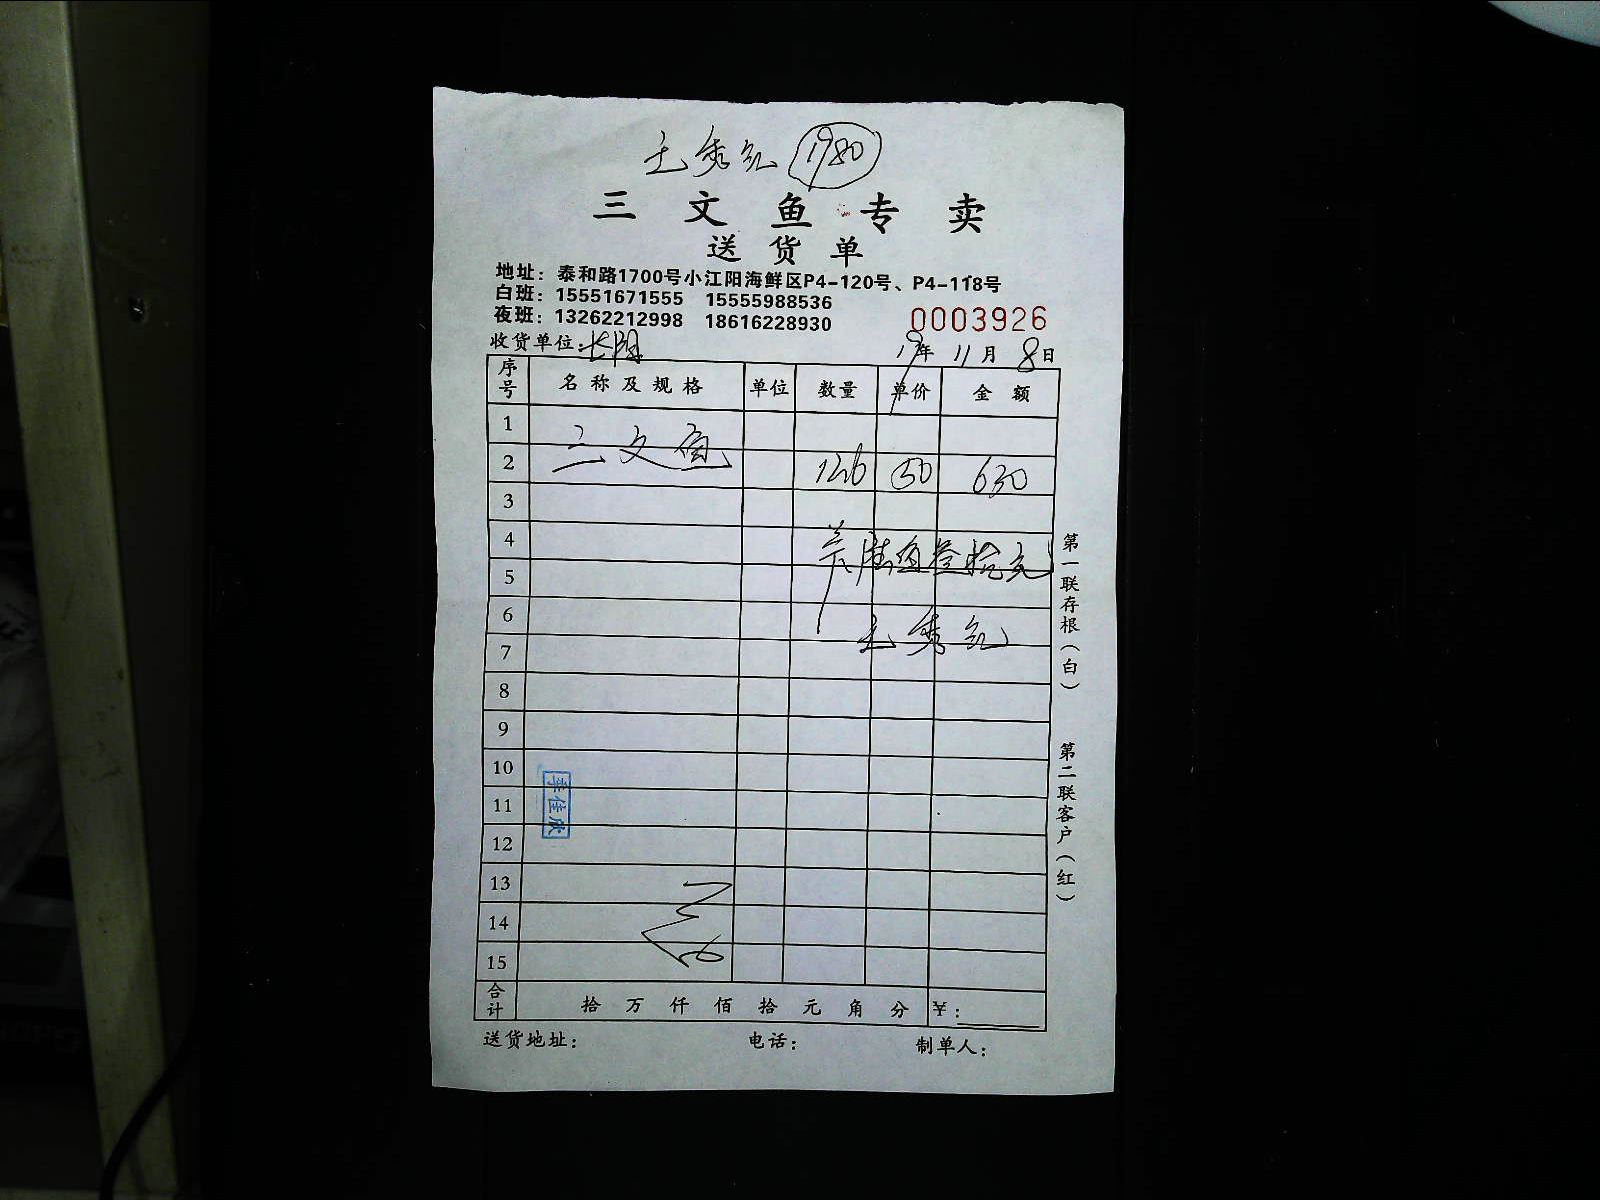 王秀红 1980
三文鱼专卖
送货单
地址：泰和路1700号小江阳海鲜区P4-120号、P4-118号
白班：15551671555 15555988536
夜班：13262212998 18616228930
0003926
收货单位：长阳 19年 11月 8日
序号 名称及规格 单位 数量 单价 金额
1
2 三文鱼 126 50 630
3
4
共陆佰叁拾元
5
6
王秀红
7
8
9
10
11
李佳欣
12
13
14
15
合计 拾 万 仟 佰 拾 元 角 分 ￥：
送货地址： 电话： 制单人：
第一联存根（白）
第二联客户（红）